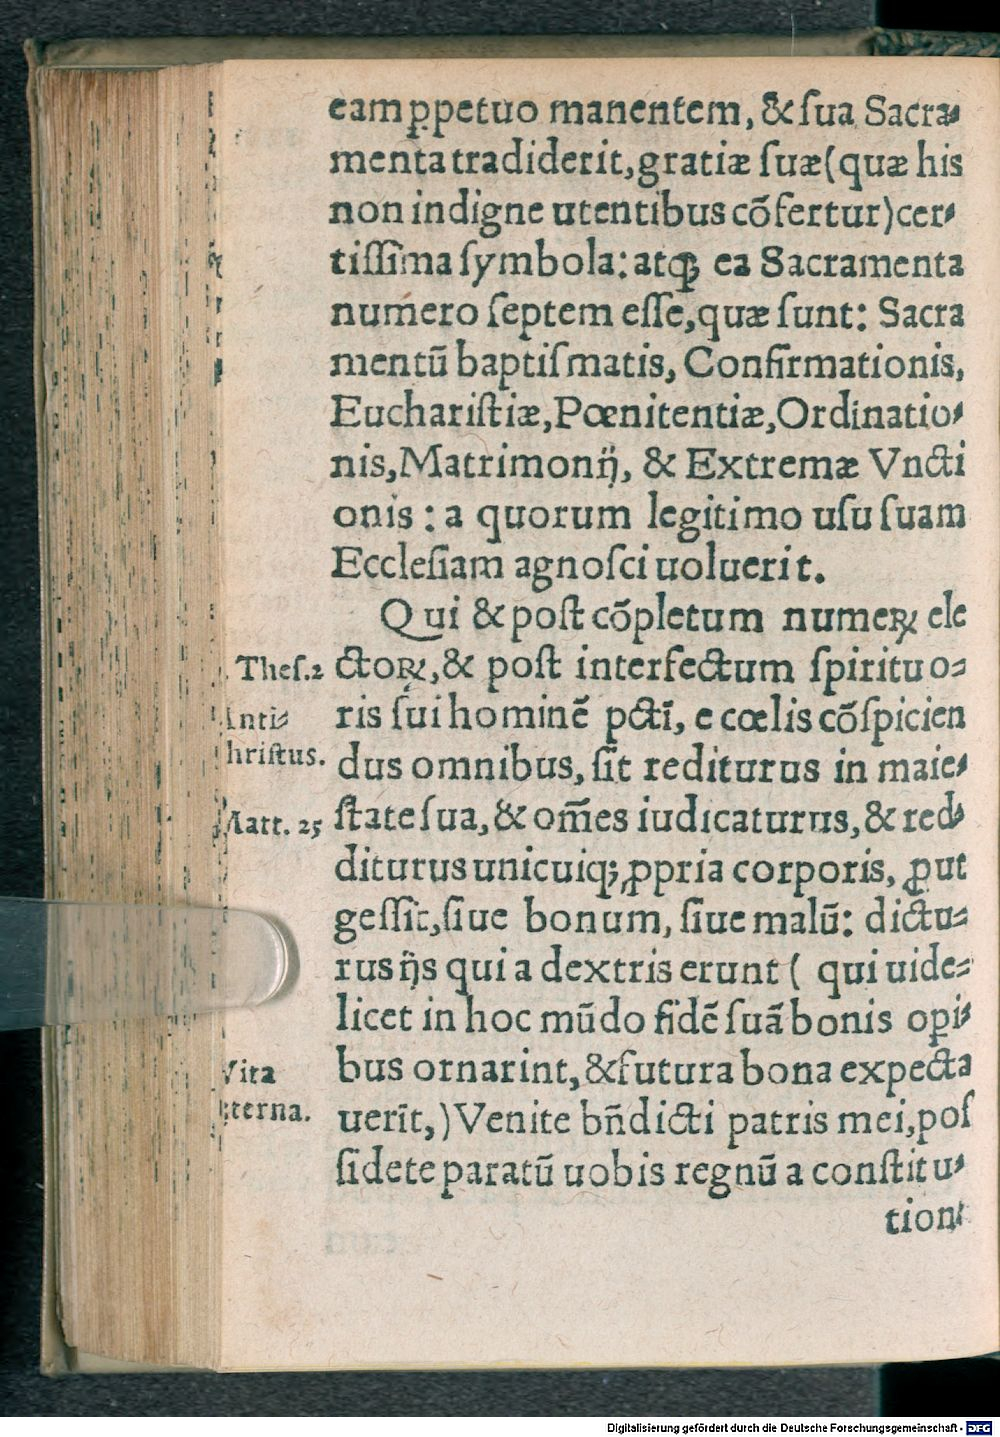 eam ꝑpetuo manentem, & ſua Sacra⸗
menta tradiderit, gratiæ ſuæ (quæ his
non indigne utentibus cõfertur) cer⸗
tiſſima ſymbola: atqꝫ ea Sacramenta
numero ſeptem eſſe, quæ ſunt: Sacra
mentũ baptiſmatis, Confirmationis,
Euchariſtiæ, Pœnitentiæ, Ordinatio⸗
nis, Matrimonĳ, & Extremæ Vncti
onis: a quorum legitimo uſu ſuam
Eccleſiam agnoſci uoluerit.
Qui & poſt cõpletum numeꝝ ele
ctoꝝ, & poſt interfectum ſpiritu o⸗
ris ſui hominẽ pctĩ, e cœlis cõſpicien
dus omnibus, ſit rediturus in maie⸗
ſtate ſua, & om̃es iudicaturus, & red⸗
diturus unicuiqꝫ, ꝓpria corporis, ꝓut
geſſit, ſiue bonum, ſiue malũ: dictu⸗
rus ĳs qui a dextris erunt ( qui uide⸗
licet in hoc mũdo fidẽ ſuã bonis oꝑi⸗
bus ornarint, & futura bona expecta
uerĩt,) Venite bñdicti patris mei, poſ
ſidete paratũ uobis regnũ a conſtitu⸗
tion⸗
Theſ. 2
Anti⸗
hriſtus.
Matt. 25
Vita
æterna.
Digitalisierung gefördert durch die Deutsche Forschungsgemeinschaft - DFG